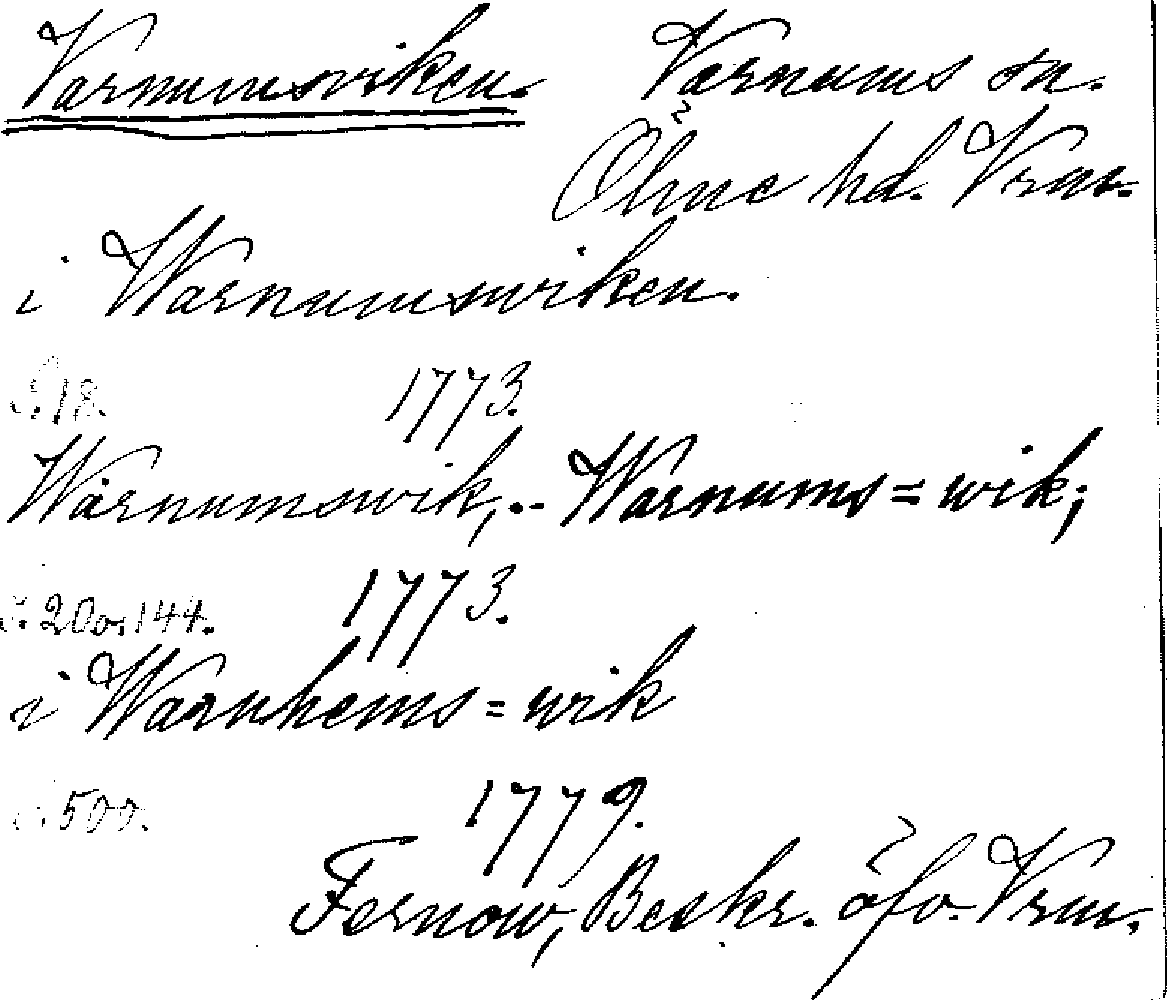 Varnumsviken. Varnums sn.
Ölme hd. Vrml.
i Warnumswiken.
S. 18. 1773.
Warnumswik, .. Warnums=wik;
s. 20 o. 144. 1773.
i Warnhems=wik
s. 500. 1779.
Fernow, Beskr. öfv. Vrml.